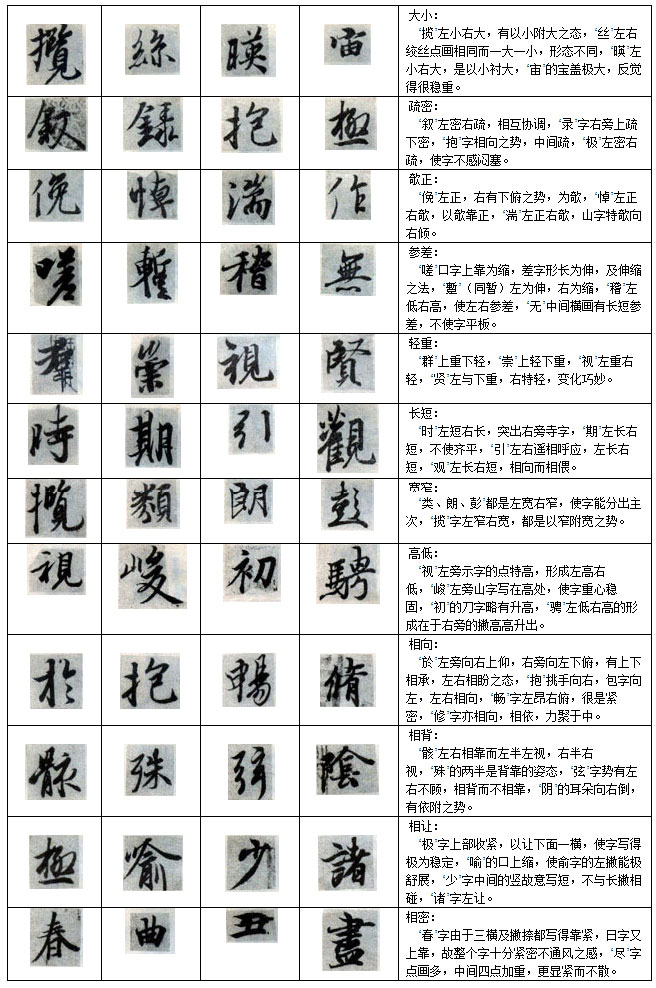 攬 絲 暎 宙
大小：
‘揽’左小右大，有以小附大之态，‘丝’左右
绞丝点画相同而一大一小，形态不同，‘暎’左
小右大，是以小衬大，‘宙’的宝盖极大，反觉
得很稳重。
叙 録 抱 極
疏密：
‘叙’左密右疏，相互协调，‘录’字右旁上疏
下密，‘抱’字相向之势，中间疏，‘极’左密右
疏，使字不感闷塞。
俛 悼 湍 作
欹正：
‘俛’左正，右有下俯之势，为欹，‘悼’左正
右欹，以欹靠正，‘湍’左正右欹，山字特欹向
右倾。
嗟 蹔 稽 無
参差：
‘嗟’口字上靠为缩，差字形长为伸，及伸缩
之法，‘蹔’（同暂）左为伸，右为缩，‘稽’左
低右高，使左右参差，‘无’中间横画有长短参
差，不使字平板。
群 崇 視 賢
轻重：
‘群’上重下轻，‘崇’上轻下重，‘视’左重右
轻，‘贤’左与下重，右特轻，变化巧妙。
時 期 引 觀
长短：
‘时’左短右长，突出右旁寺字，‘期’左长右
短，不使齐平，‘引’左右遥相呼应，左长右
短，‘观’左长右短，相向而相偎。
攬 類 朗 彭
宽窄：
‘类、朗、彭’都是左宽右窄，使字能分出主
次，‘揽’字左窄右宽，都是以窄附宽之势。
視 峻 初 騁
高低：
‘视’左旁示字的点特高，形成左高右
低，‘峻’左旁山字写在高处，使字重心稳
固，‘初’的刀字略有升高，‘骋’左低右高的形
成在于右旁的撇高高升出。
於 抱 暢 脩
相向：
‘於’左旁向右上仰，右旁向左下俯，有上下
相承，左右相盼之态，‘抱’挑手向右，包字向
左，左右相向，‘畅’字左昂右俯，很是紧
密，‘修’字亦相向，相依，力聚于中。
骸 殊 弦 陰
相背：
‘骸’左右相靠而左半左视，右半右
视，‘殊’的两半是背靠的姿态，‘弦’字势有左
右不顾，相背而不相靠，‘阴’的耳朵向右倒，
有依附之势。
極 喻 少 諸
相让：
‘极’字上部收紧，以让下面一横，使字写得
极为稳定，‘喻’的口上缩，使俞字的左撇能极
舒展，‘少’字中间的竖故意写短，不与长撇相
碰，‘诸’字左让。
春 曲 丑 盡
相密：
‘春’字由于三横及撇捺都写得靠紧，日字又
上靠，故整个字十分紧密不通风之感，‘尽’字
点画多，中间四点加重，更显紧而不散。